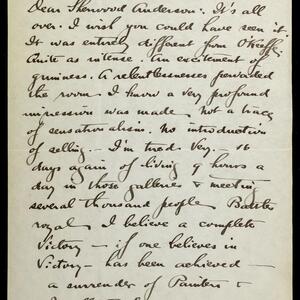 Dear Sherwood Anderson: It's all
over. I wish you could have seen it.
It was entirely different from O'Keeffe.
Quite as intense. An excitement of
grimness. A relentlessness pervaded
the room. I know a very profound
impression was made. Not a trace
of "sensationalism. No introduction
of selling. — I'm tired. Very. — 16
days again of living 9 hours a
day in those galleries & meeting
several thousand people. Battle
royal. I believe a complete
Victory — if one believes in
Victory — has been achieved —
a surrender of Painters &